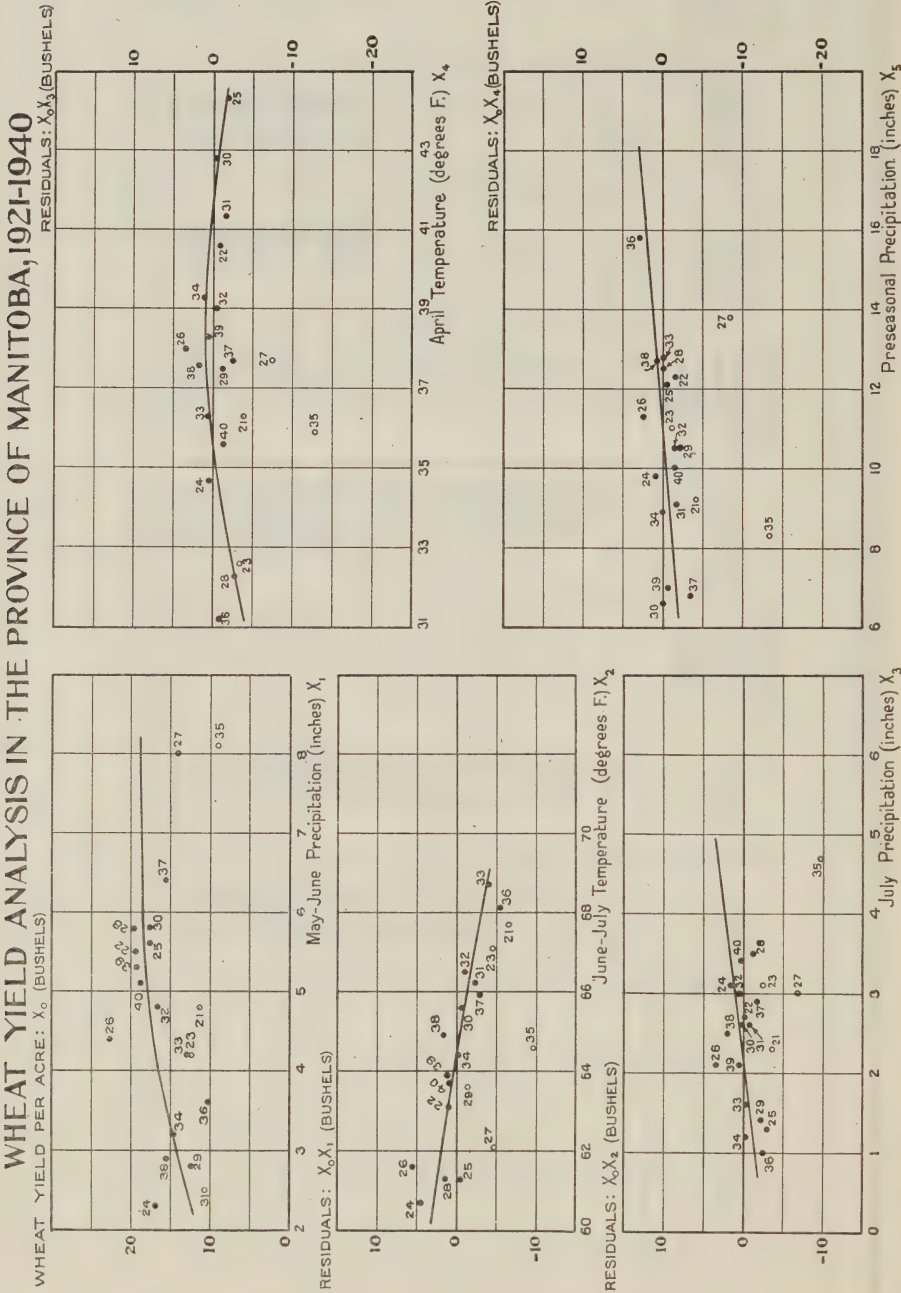 WHEAT YIELD ANALYSIS IN THE PROVINCE OF MANITOBA, 1921-1940
WHEAT YIELD PER ACRE: X₀ (BUSHELS)
20
10
0
24
31
38
29
34
36
26
33
23
32
21
40
39
22
28
25
30
37
27
35
2
3
4
5
6
7
8
May-June Precipitation (inches) X₁
RESIDUALS: X₀X₁ (BUSHELS)
10
0
-10
24
26
28
25
27
22
40
39
29
34
38
35
30
37
31
32
23
21
36
33
60
62
64
66
68
70
June-July Temperature (degrees F.) X₂
RESIDUALS: X₀X₂ (BUSHELS)
10
0
-10
36
34
25
29
33
39
26
21
38
30
31
22
37
32
27
24
23
40
28
35
0
1
2
3
4
5
6
July Precipitation (inches) X₃
RESIDUALS: X₀X₃ (BUSHELS)
10
0
-10
-20
36
28
23
24
40
35
33
21
29
38
37
27
26
39
32
34
22
31
30
25
31
33
35
37
39
41
43
April Temperature (degrees F.) X₄
RESIDUALS: X₀X₄ (BUSHELS)
10
0
-10
-20
30
37
39
35
34
31
21
24
40
29
32
23
26
25
22
28
38
33
27
36
6
8
10
12
14
16
18
Preseasonal Precipitation (inches) X₅